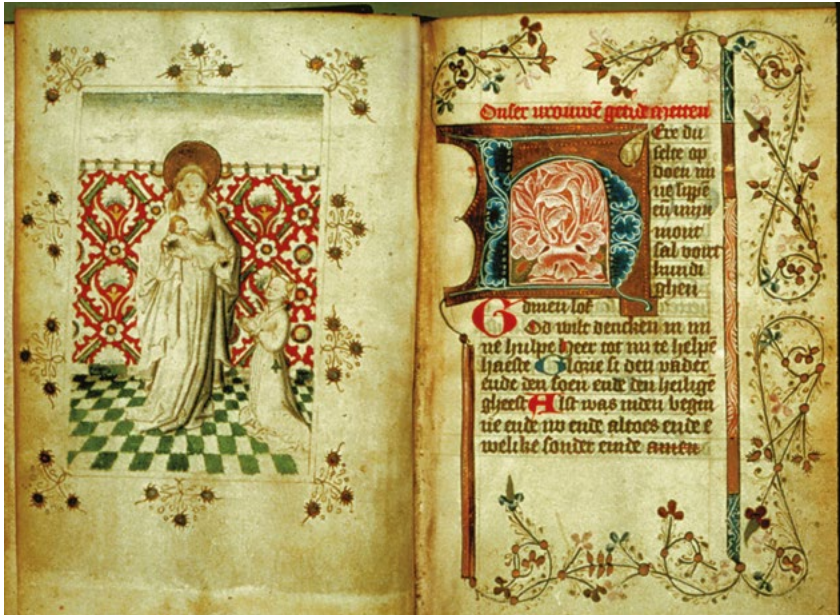 Onser vrouwē getide mettenen
Ere du
selte op
doen mi
ne lippē
eñ min
mont
sal voirt
kundi
ghen
G dinen lof
Od wilt dencken in mi
ne hulpe Heer tot mi te helpē
haeste Glorie si den vader
ende den soen ende den heilige
gheest Alst was inden begen
ne ende nv ende altoes ende e
welike sonder einde amen